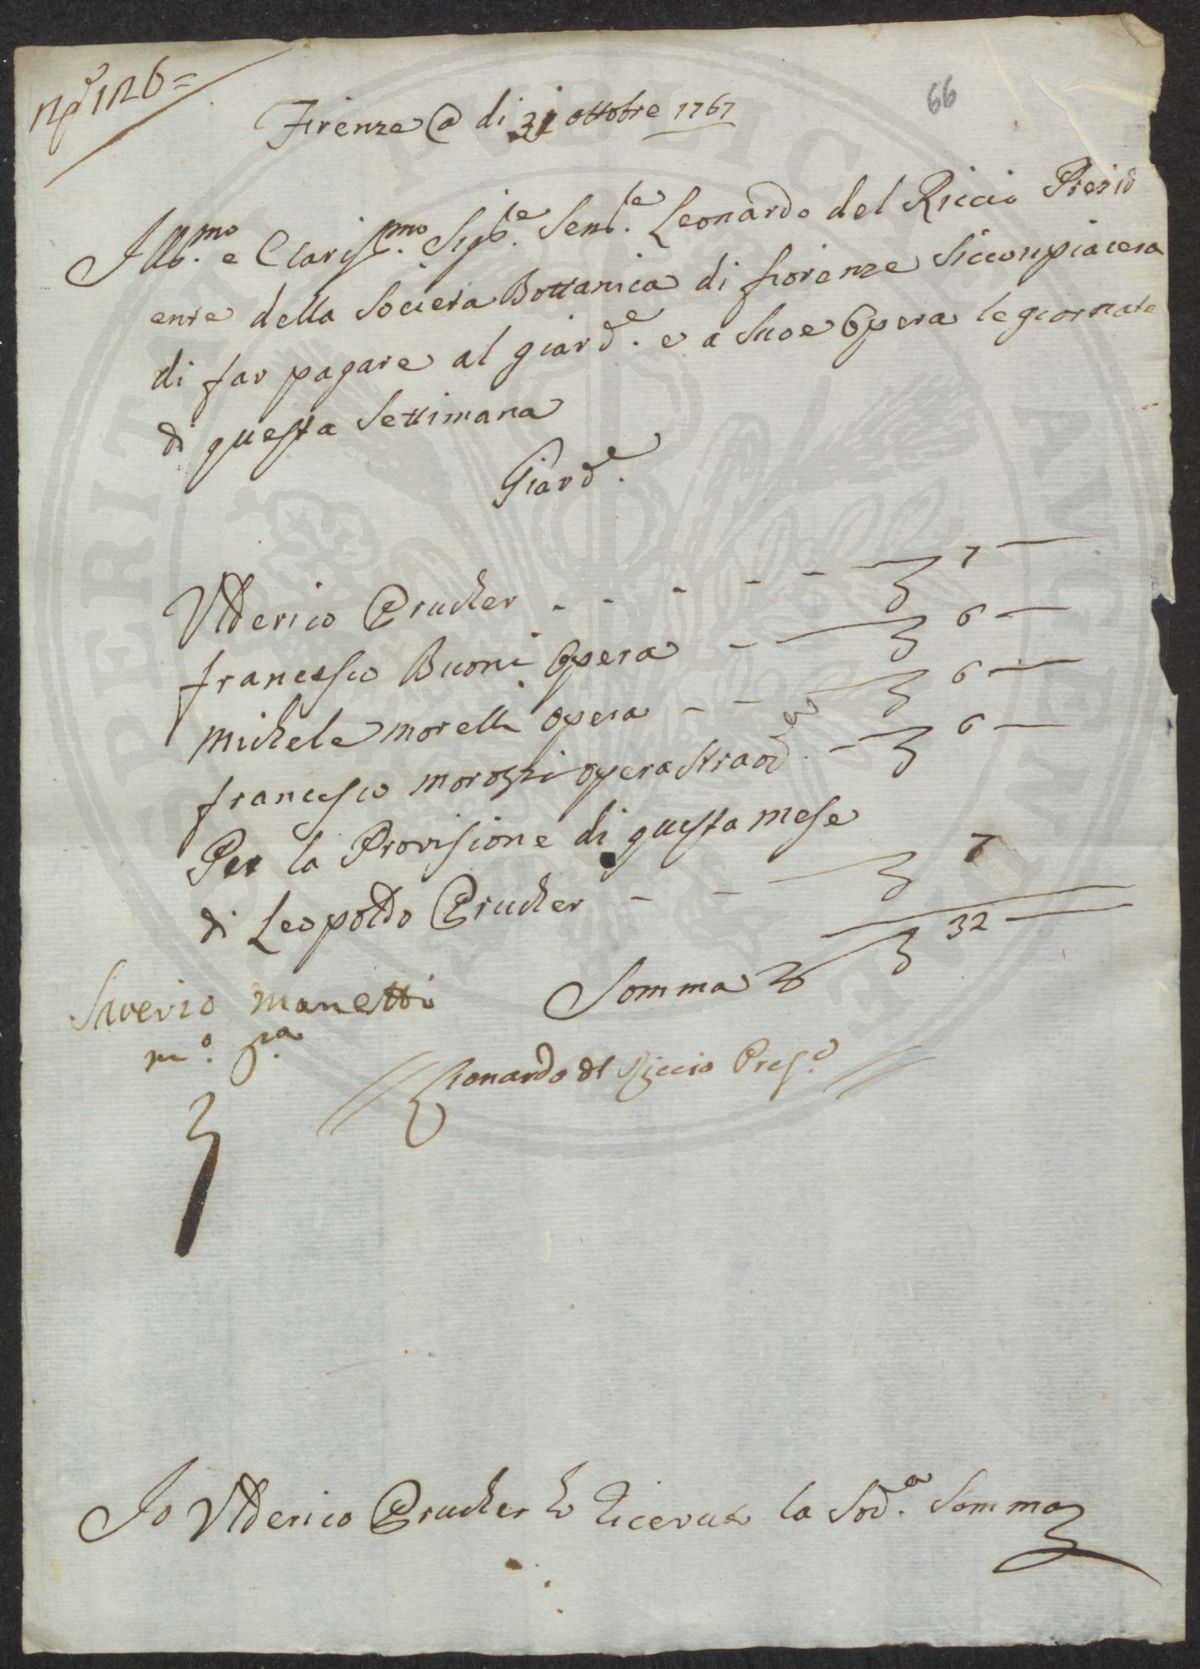 No 126=
66
Firenze @ di 31 ottobre 1767
Illmo. e Clarissmo. Sige. Sente. Leonardo del Riccio Presid
ente della Societa Bottanica di fiorenze Siccompiacera
di far pagare al giarde. e a Suoe Opera le giornate
di questa Settimana
Giarde.
Ulderico Prucker - - - - - 7 -
francesco Buoni Opera - - 6 -
Michele morelli opera - - 6 -
francesco morozzi opera straord - 6 -
Per la Provisione di questa mese
di Leopoldo Prucker - - 7
Somma 32 -
Saverio Manetti
mo. pa.
Lionardo dl Riccio Presd.
Io Ulderico Prucker ho Riceuto la Sod.a Somma